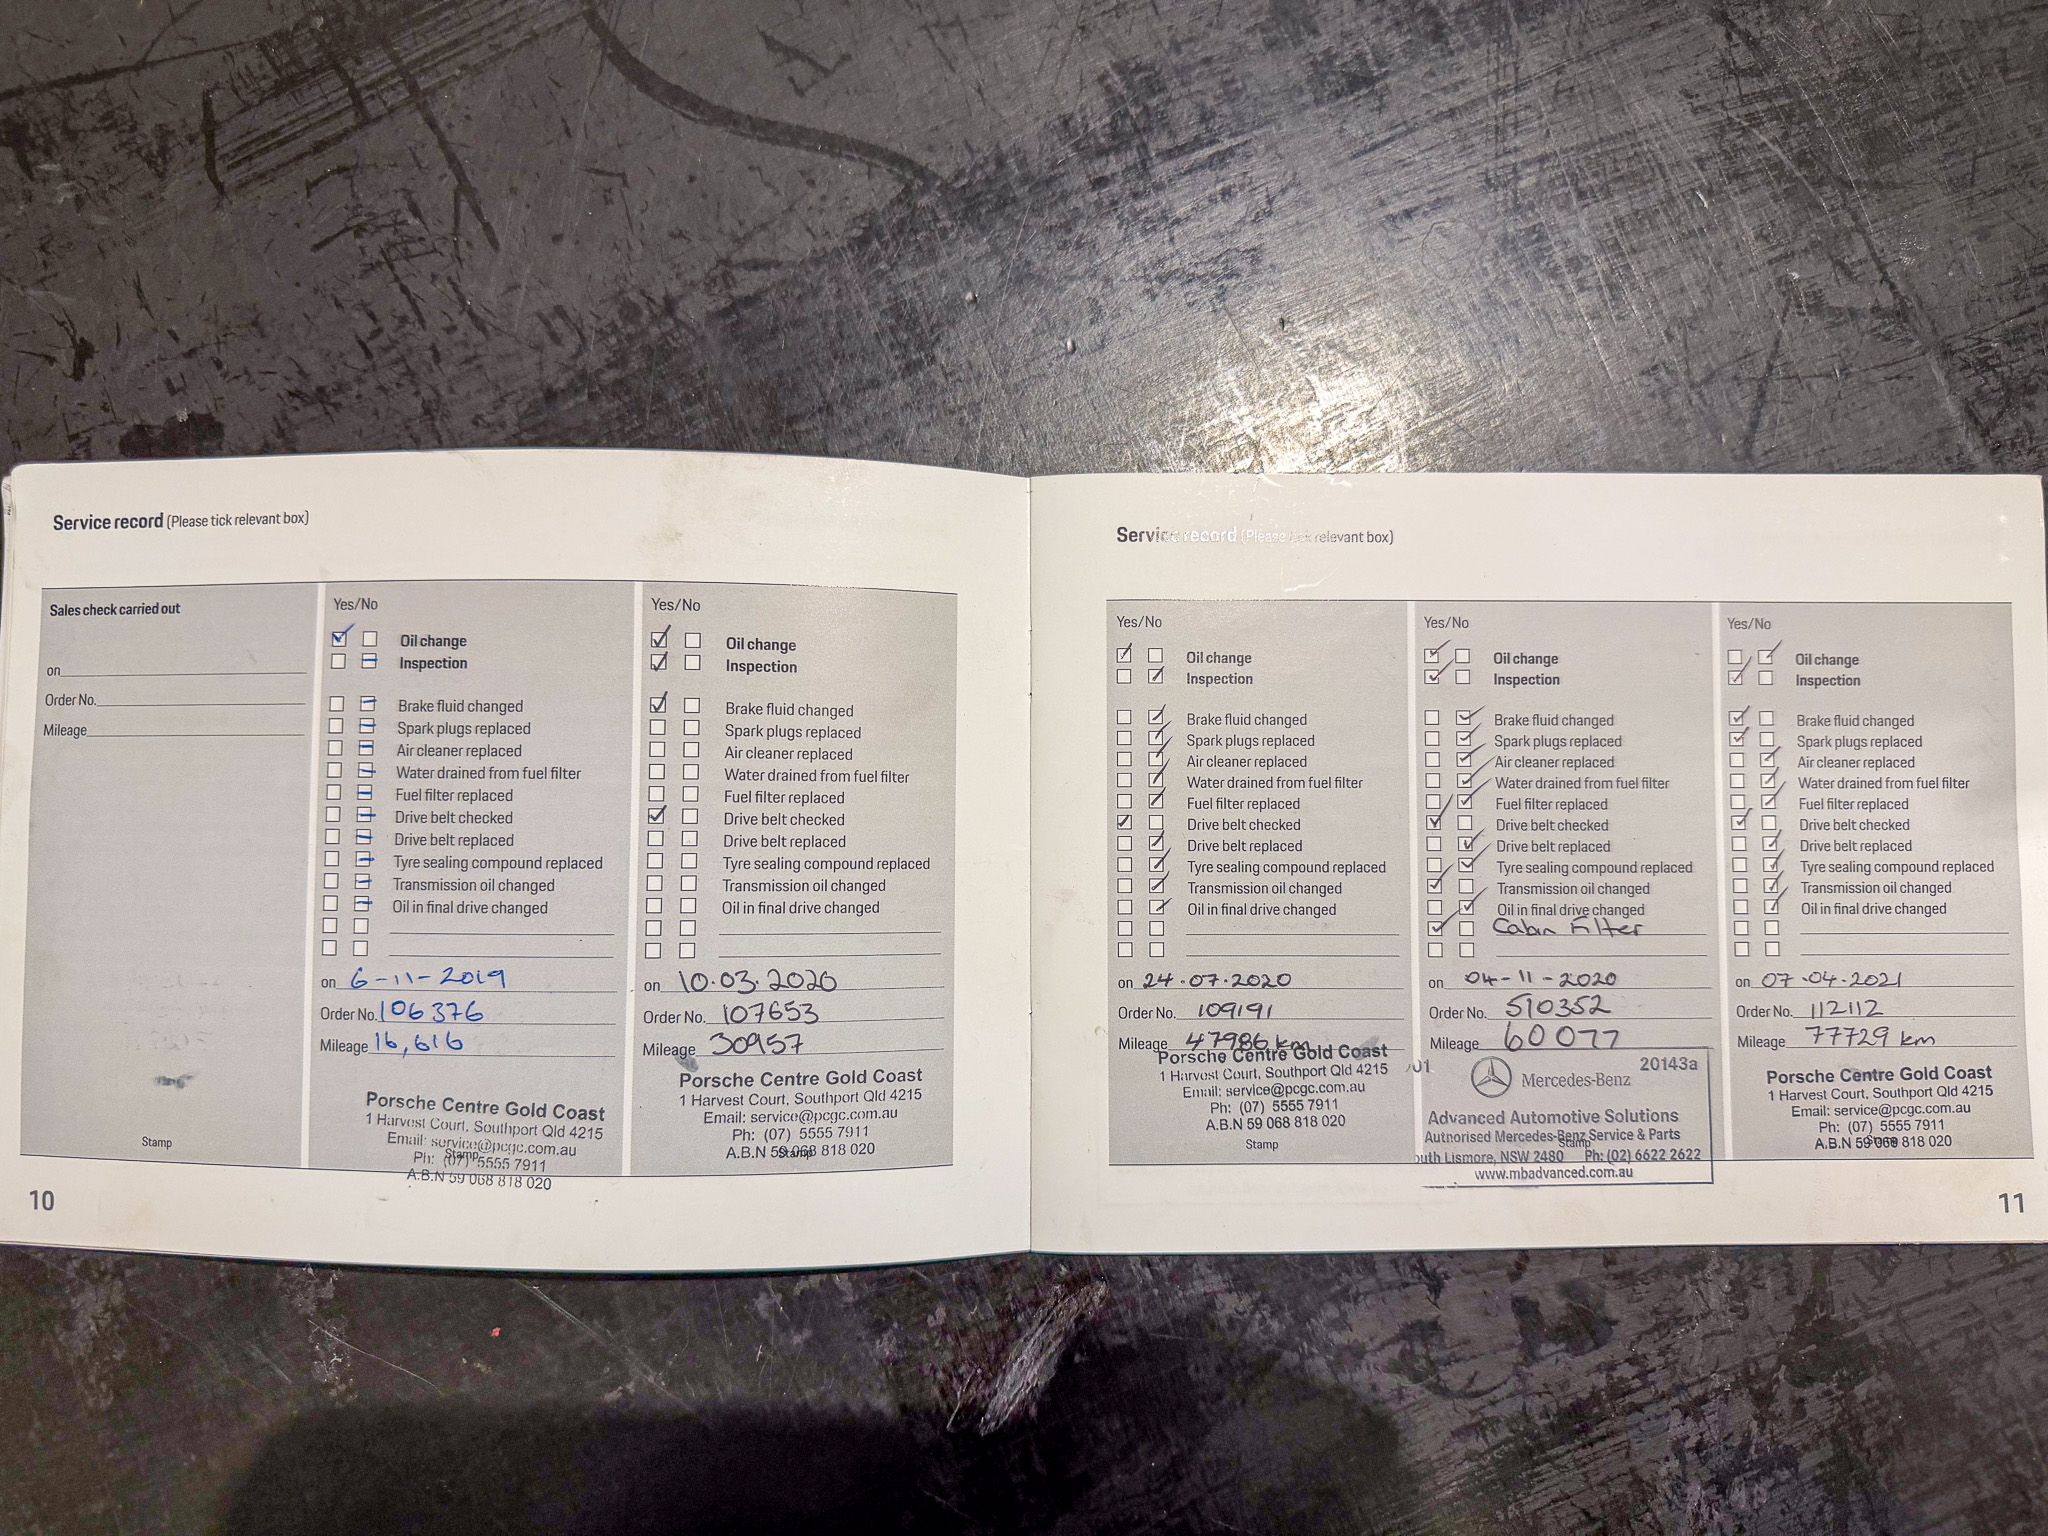 Service record (Please tick relevant box)
Sales check carried out
on
Order No.
Mileage
Stamp
Yes/No
Oil change
Inspection
Brake fluid changed
Spark plugs replaced
Air cleaner replaced
Water drained from fuel filter
Fuel filter replaced
Drive belt checked
Drive belt replaced
Tyre sealing compound replaced
Transmission oil changed
Oil in final drive changed
on 6-11-2019
Order No. 106376
Mileage 16,616
Porsche Centre Gold Coast
1 Harvest Court, Southport Qld 4215
Email: service@pcgc.com.au
Stamp
Ph: (07) 5555 7911
A.B.N 59 068 818 020
Yes/No
Oil change
Inspection
Brake fluid changed
Spark plugs replaced
Air cleaner replaced
Water drained from fuel filter
Fuel filter replaced
Drive belt checked
Drive belt replaced
Tyre sealing compound replaced
Transmission oil changed
Oil in final drive changed
on 10.03.2020
Order No. 107653
Mileage 30957
Porsche Centre Gold Coast
1 Harvest Court, Southport Qld 4215
Email: service@pcgc.com.au
Ph: (07) 5555 7911
A.B.N 59 068 818 020
Stamp
10
Service record (Please tick relevant box)
Yes/No
Oil change
Inspection
Brake fluid changed
Spark plugs replaced
Air cleaner replaced
Water drained from fuel filter
Fuel filter replaced
Drive belt checked
Drive belt replaced
Tyre sealing compound replaced
Transmission oil changed
Oil in final drive changed
on 24.07.2020
Order No. 109191
Mileage 47986 km
Porsche Centre Gold Coast
1 Harvest Court, Southport Qld 4215
Email: service@pcgc.com.au
Ph: (07) 5555 7911
A.B.N 59 068 818 020
Stamp
Yes/No
Oil change
Inspection
Brake fluid changed
Spark plugs replaced
Air cleaner replaced
Water drained from fuel filter
Fuel filter replaced
Drive belt checked
Drive belt replaced
Tyre sealing compound replaced
Transmission oil changed
Oil in final drive changed
Cabin Filter
on 04-11-2020
Order No. 510352
Mileage 60077
Mercedes-Benz 20143a
Advanced Automotive Solutions
Authorised Mercedes-Benz Service & Parts
Stamp
uth Lismore, NSW 2480 Ph: (02) 6622 2622
www.mbadvanced.com.au
Yes/No
Oil change
Inspection
Brake fluid changed
Spark plugs replaced
Air cleaner replaced
Water drained from fuel filter
Fuel filter replaced
Drive belt checked
Drive belt replaced
Tyre sealing compound replaced
Transmission oil changed
Oil in final drive changed
on 07.04.2021
Order No. 112112
Mileage 77729 km
Porsche Centre Gold Coast
1 Harvest Court, Southport Qld 4215
Email: service@pcgc.com.au
Ph: (07) 5555 7911
A.B.N 59 068 818 020
Stamp
11